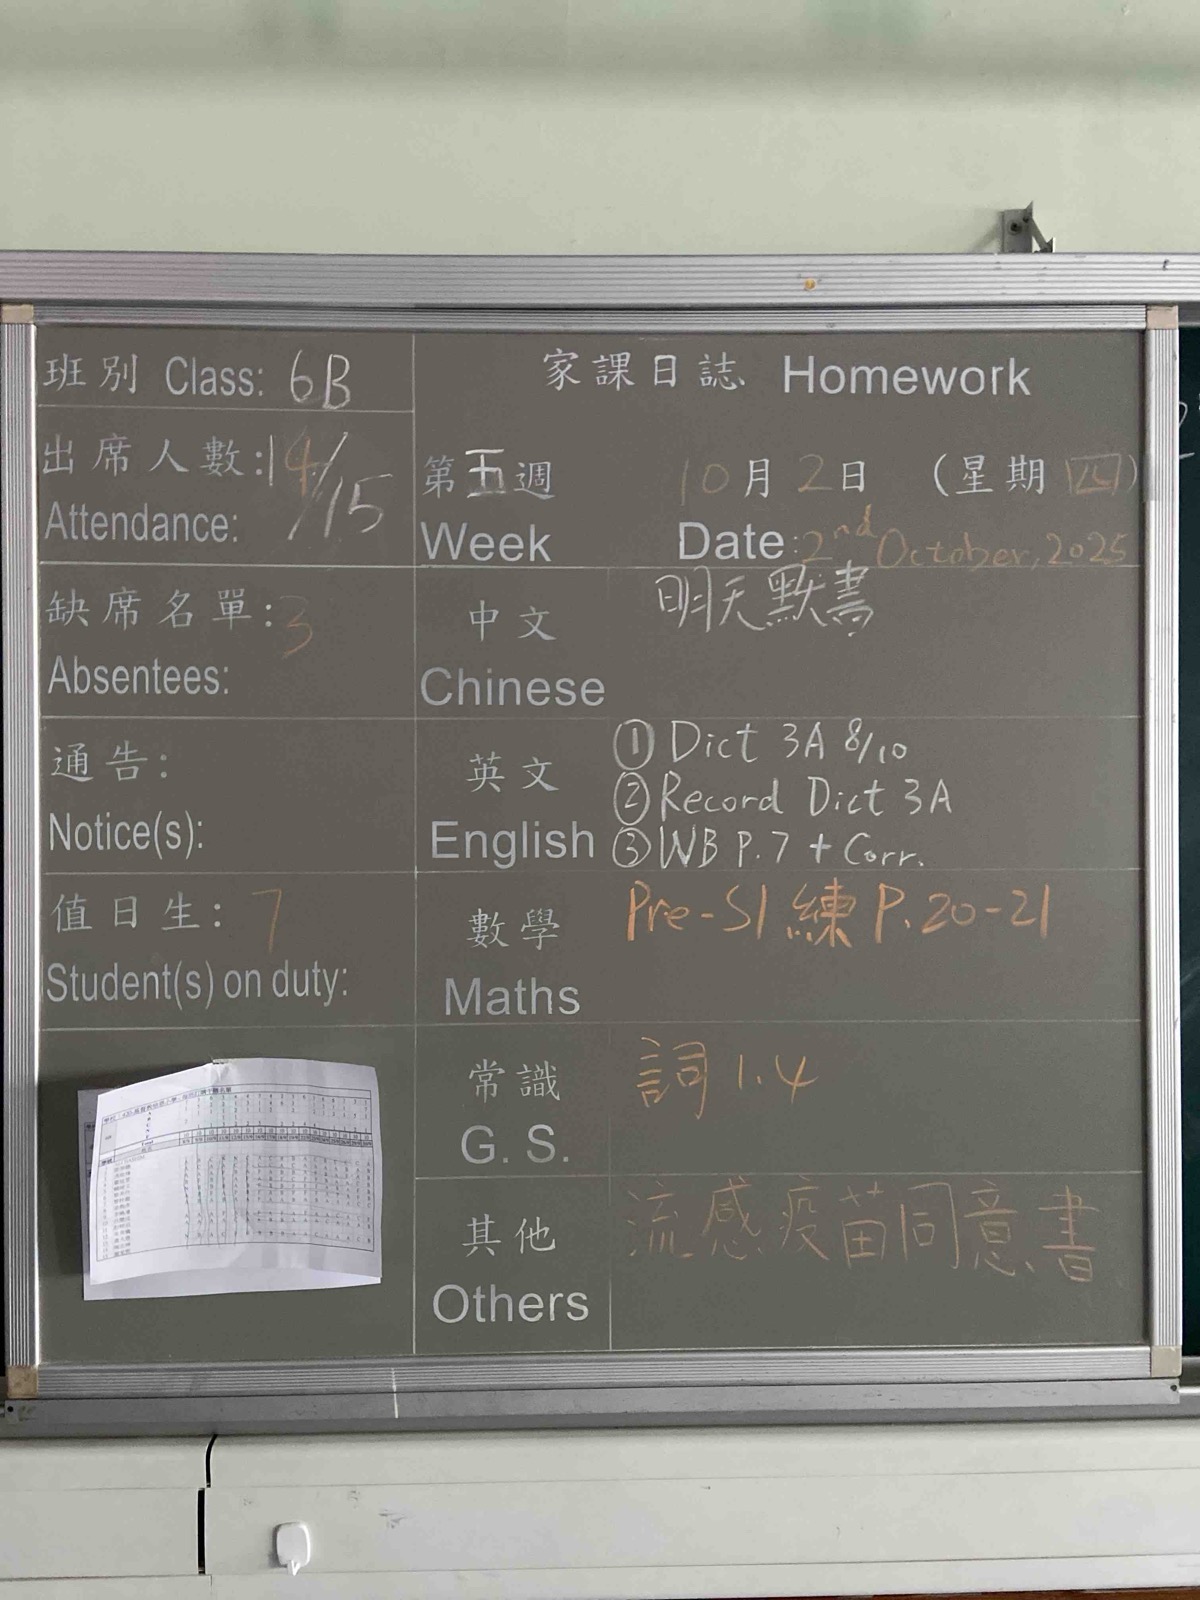 班別 Class: 6B
出席人數: 14/15
Attendance:
缺席名單: 3
Absentees:
通告:
Notice(s):
值日生: 7
Student(s) on duty:
家課日誌 Homework
第五週 10月2日 (星期四)
Week Date: 2nd October, 2025
中文 明天默書
Chinese
英文 ① Dict 3A 8/10
② Record Dict 3A
English ③ WB P.7 + Corr.
數學 Pre-S1 練 P.20-21
Maths
常識 詞 1.4
G. S.
其他 流感疫苗同意書
Others